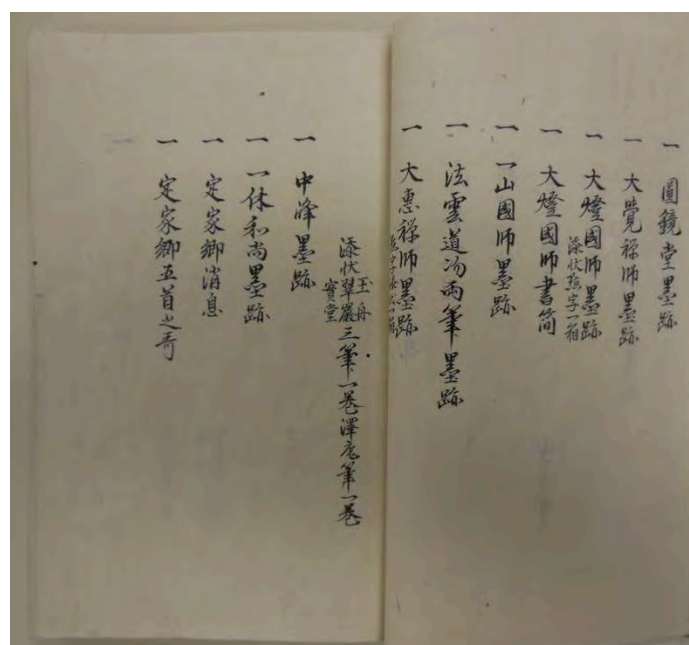 一 圓鏡堂墨跡
一 大覺禅師墨跡
一 大燈國師墨跡
添状 字一箱
一 大燈國師書简
一 一山國師墨跡
一 法雲道冲両筆墨跡
一 大惠禅師墨跡
添状翠巖 玉舟 寳堂 三筆一巻澤庵筆一巻
一 中峰墨跡
一 一休和尚墨跡
一 定家卿消息
一 定家卿五首之哥